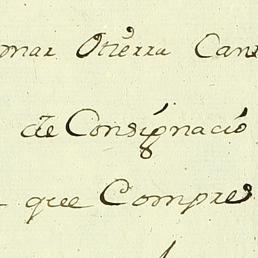 omar Otiērra Can
de Consignació
que Compres